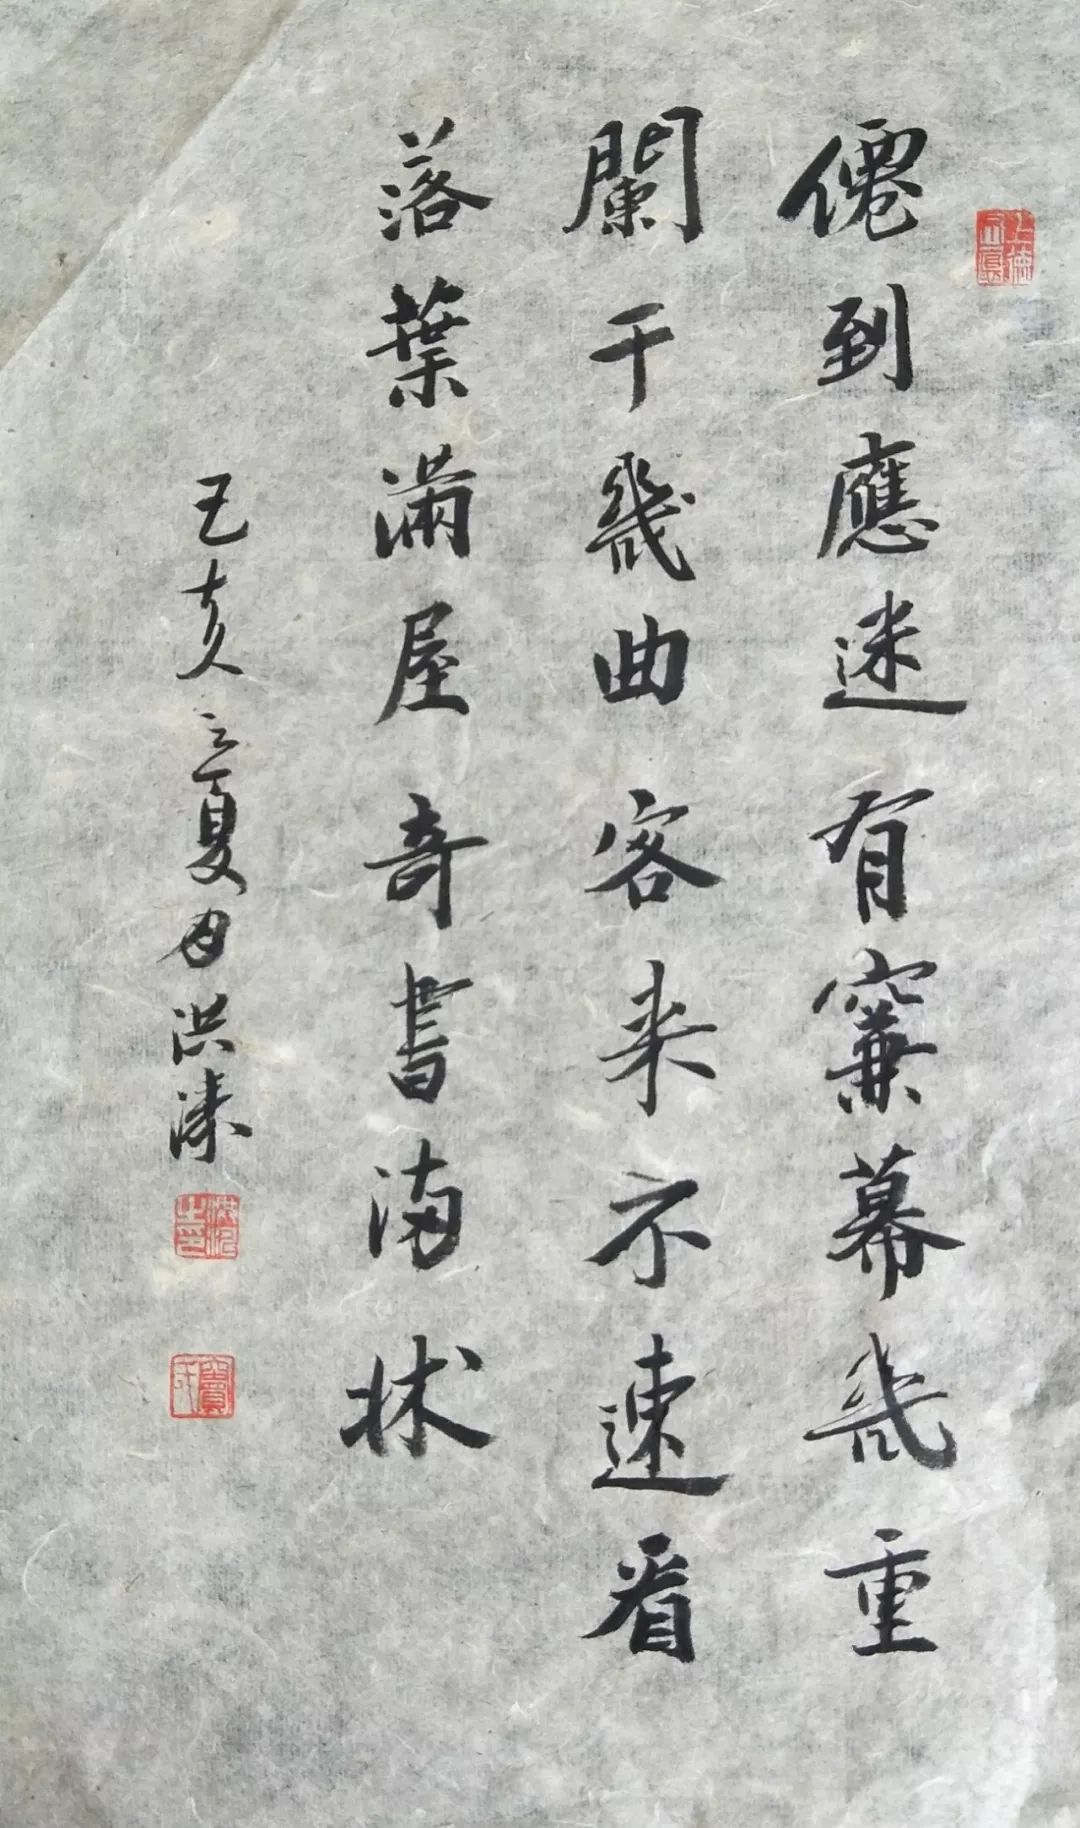 僊到應迷有簾幕幾重
闌干幾曲客来不速看
落葉滿屋奇書滿牀
己亥立夏月洪濤